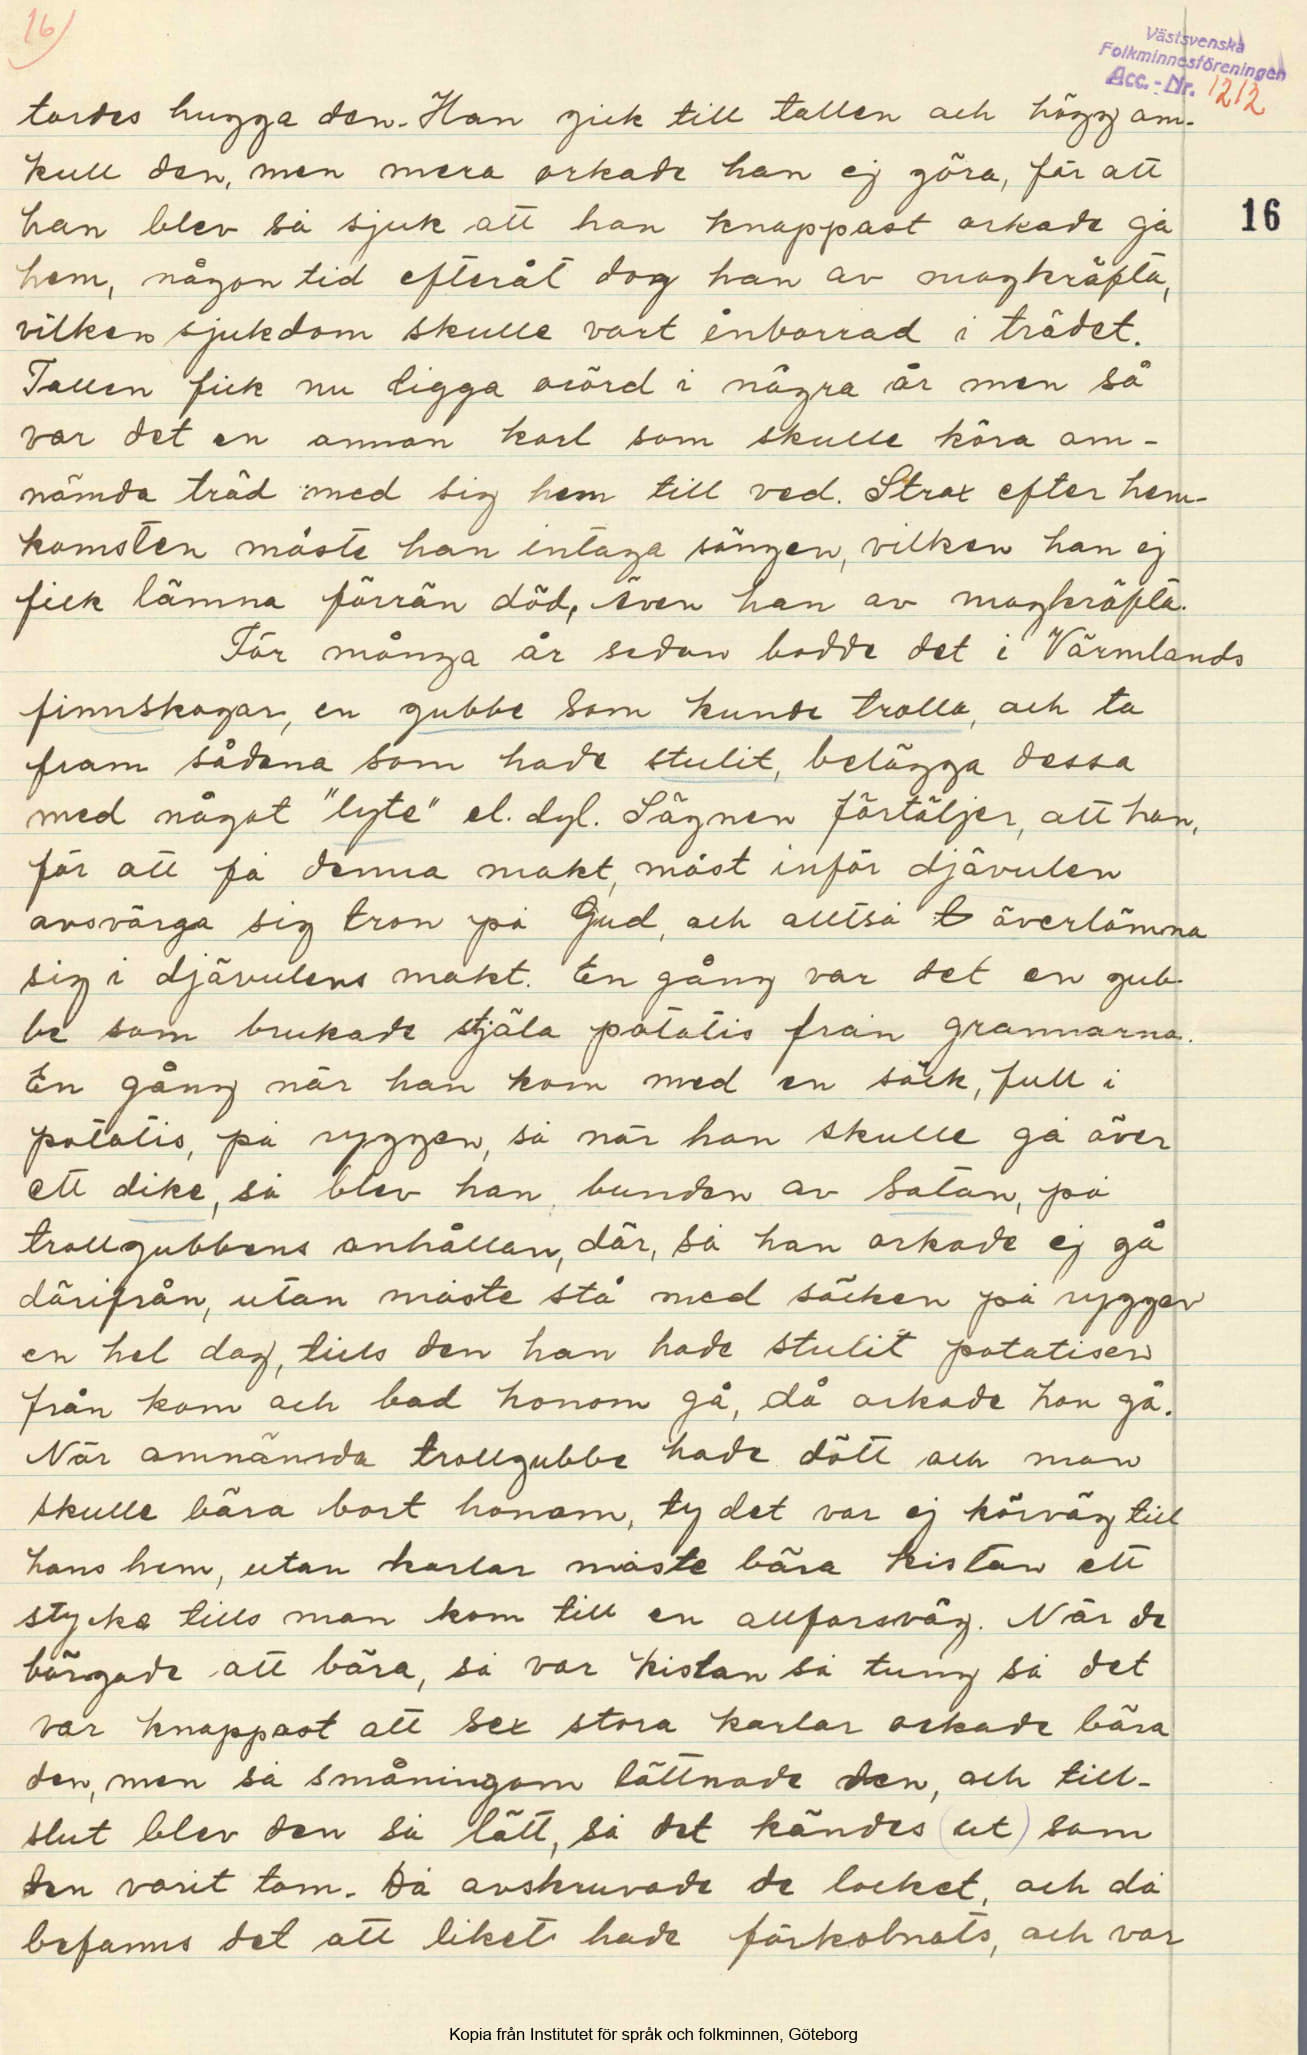 16)
Västsvenska
Folkminnesföreningen
Acc.-Nr. 1212
tordes hugga den. Han gick till tallen och högg om-
kull den, men mera orkade han ej göra, för att
16
han blev så sjuk att han knappast orkade gå
hem, någon tid efteråt dog han av magkräfta,
vilken sjukdom skulle vart inborrad i trädet.
Tallen fick nu ligga orörd i några år men så
var det en annan karl som skulle köra om-
nämda träd med sig hem till ved. Strax efter hem-
komsten måste han intaga sängen, vilken han ej
fick lämna förrän död, även han av magkräfta.
För många år sedan bodde det i Värmlands
finnskogar, en gubbe som kunde trolla, och ta
fram sådena som hade stulit, belägga dessa
med något "lyte" el. dyl. Sägnen förtäljer, att han,
för att få denna makt, måst inför djävulen
avsvärga sig tron på Gud, och alltså t överlämna
sig i djävulens makt. En gång var det en gub-
be som brukade stjäla potatis från grannarna.
En gång när han kom med en säck, full i
potatis, på ryggen, så när han skulle gå över
ett dike, så blev han bunden av Satan, på
trollgubbens anhållan, där, så han orkade ej gå
därifrån, utan måste stå med säcken på ryggen
en hel dag, tills den han hade stulit potatisen
från kom och bad honom gå, då orkade han gå.
När omnämnda trollgubbe hade dött och man
skulle bära bort honom, ty det var ej körväg till
hans hem, utan karlar måste bära kistan ett
stycke tills man kom till en allfarsväg. När de
börgade att bära, så var kistan så tung så det
var knappast att sex stora karlar orkade bära
den, men så småningom lättnade den, och till-
slut blev den så lätt, så det kändes (ut) som
den varit tom. Då avskruvade de locket, och då
befanns det att liket hade förkolnats, och var
Kopia från Institutet för språk och folkminnen, Göteborg